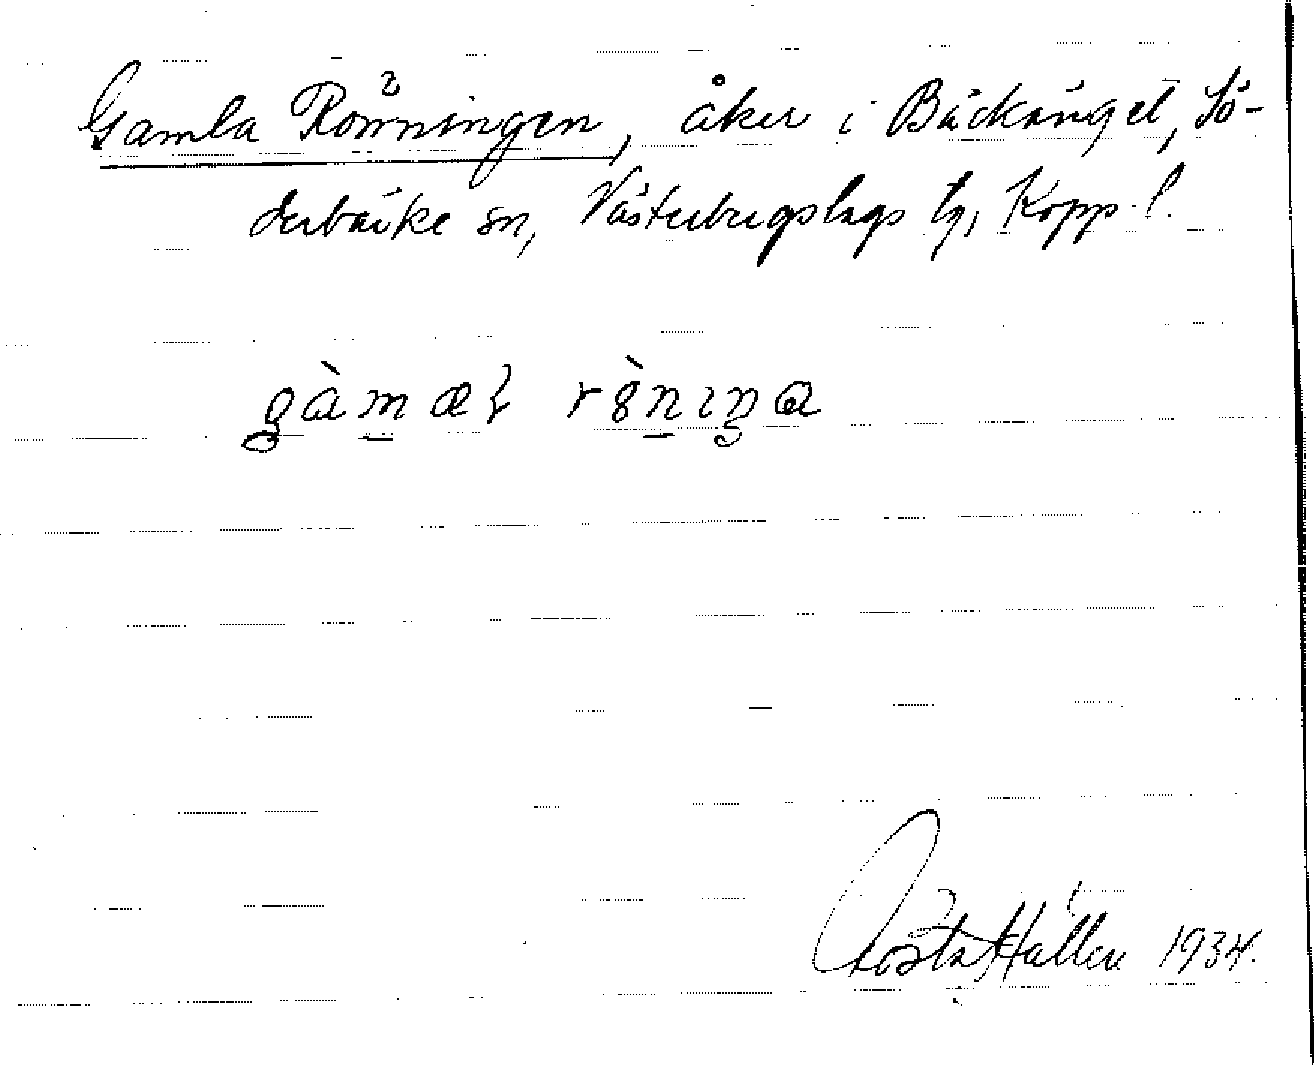 Gamla Rönningen, åker i Bäckängel, Sö-
derbärke sn, Västerbergslags tg, Kopp. l.
gàmæł rȣ̀nıŋa
Gösta Hallén 1934.